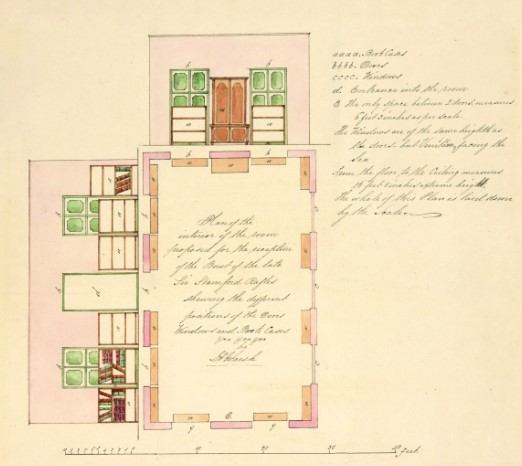 aaaa. Book Cases
bbbb. Doors
cccc. Windows
d. Entrance into the room
e. The only space between 2 doors measures
6 feet 3 inches as per scale
The Windows are of the same heighth as
the doors, but Venetian, facing the
Sea
From the floor to the Ceiling measures
18 feet 8 inches extreme height.
The whole of this Plan is laid down
by the scale
Plan of the
interior of the room
proposed for the reception
of the Bust of the late
Sir Stamford Raffles
shewing the different
positions of the Doors
Windows and Book Cases
by
feet